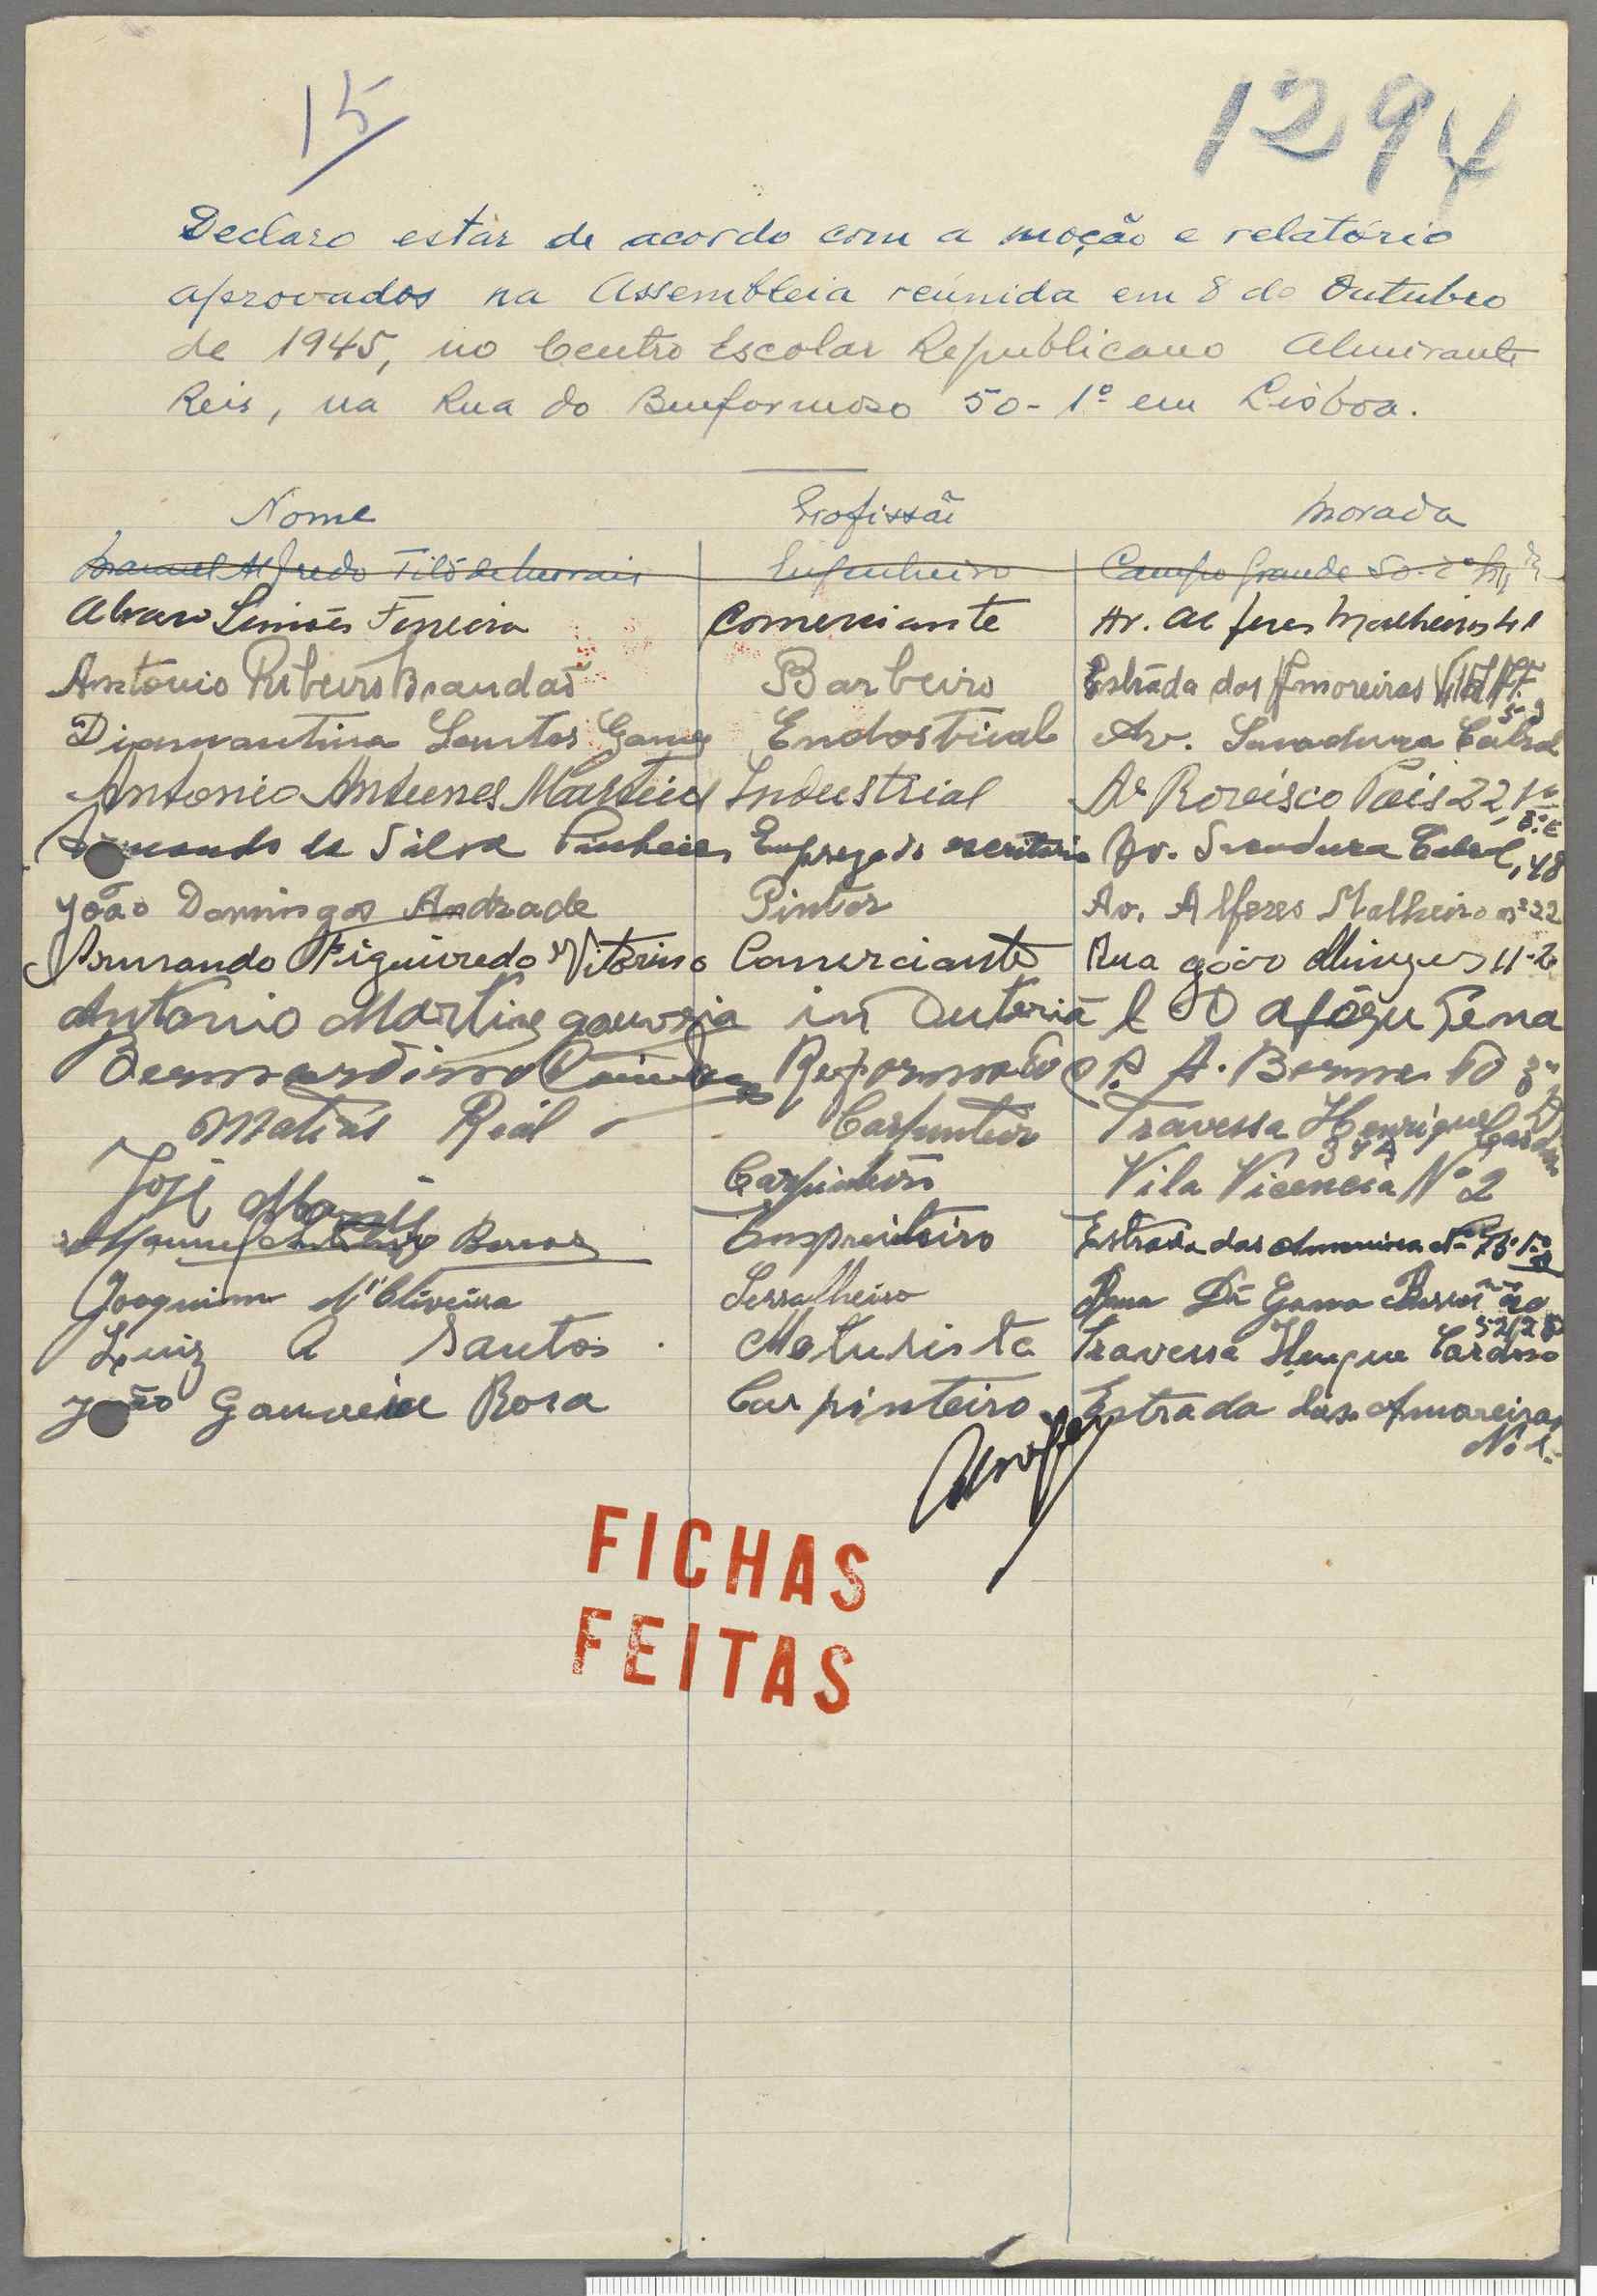 15
1294
Declaro estar de acordo com a moção e relatório
aprovados na Assembleia reúnida em 8 de Outubro
de 1945, no Centro Escolar Republicano Almirante
Reis, na Rua do Benformoso 50-1º em Lisboa.
Nome Profissão Morada
Manuel Alfredo Tiló de Morais Engenheiro Campo Grande 50-2º
Alvaro Simões Ferreira Comerciante Av. Alferes Malheiro 41
Antonio Ribeiro Brandão Barbeiro Estráda dos Amoreiras
Diamantina Santos Gomes Endostrial Av. Sacadura Cabral
Antonio Antunes Martins Industrial Av Rovisco Pais 22, 1º
da Silva Pinheiro Empregado escritório Av. Sacadura Cabral, 48
João Domingos Andrade Pintor Av. Alferes Malheiro nº 22
Armando Figueiredo Vitorino Comerciante Rua João Minguens 11-2
Antonio Martins
Bernardino Reformado
Matias Rial Carpinteiro Travessa Henrique Cardoso
José Carpinteiro Vila Vicencia Nº 2
Manuel Barros Empreiteiro Estrada das
Joaquim d'Oliveira Serralheiro
Luiz A Santos Moturista Travessa Henrique Cardoso
João Gouveia Rosa Carpinteiro Estrada das Amoreiras
Nº 1
FICHAS
FEITAS